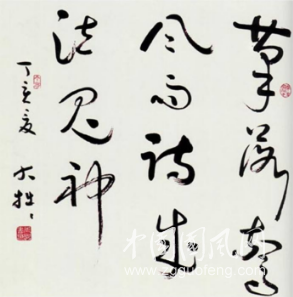 筆落驚
風雨詩成
泣鬼神
丁亥夏
中国国风网
www.zgguofeng.com